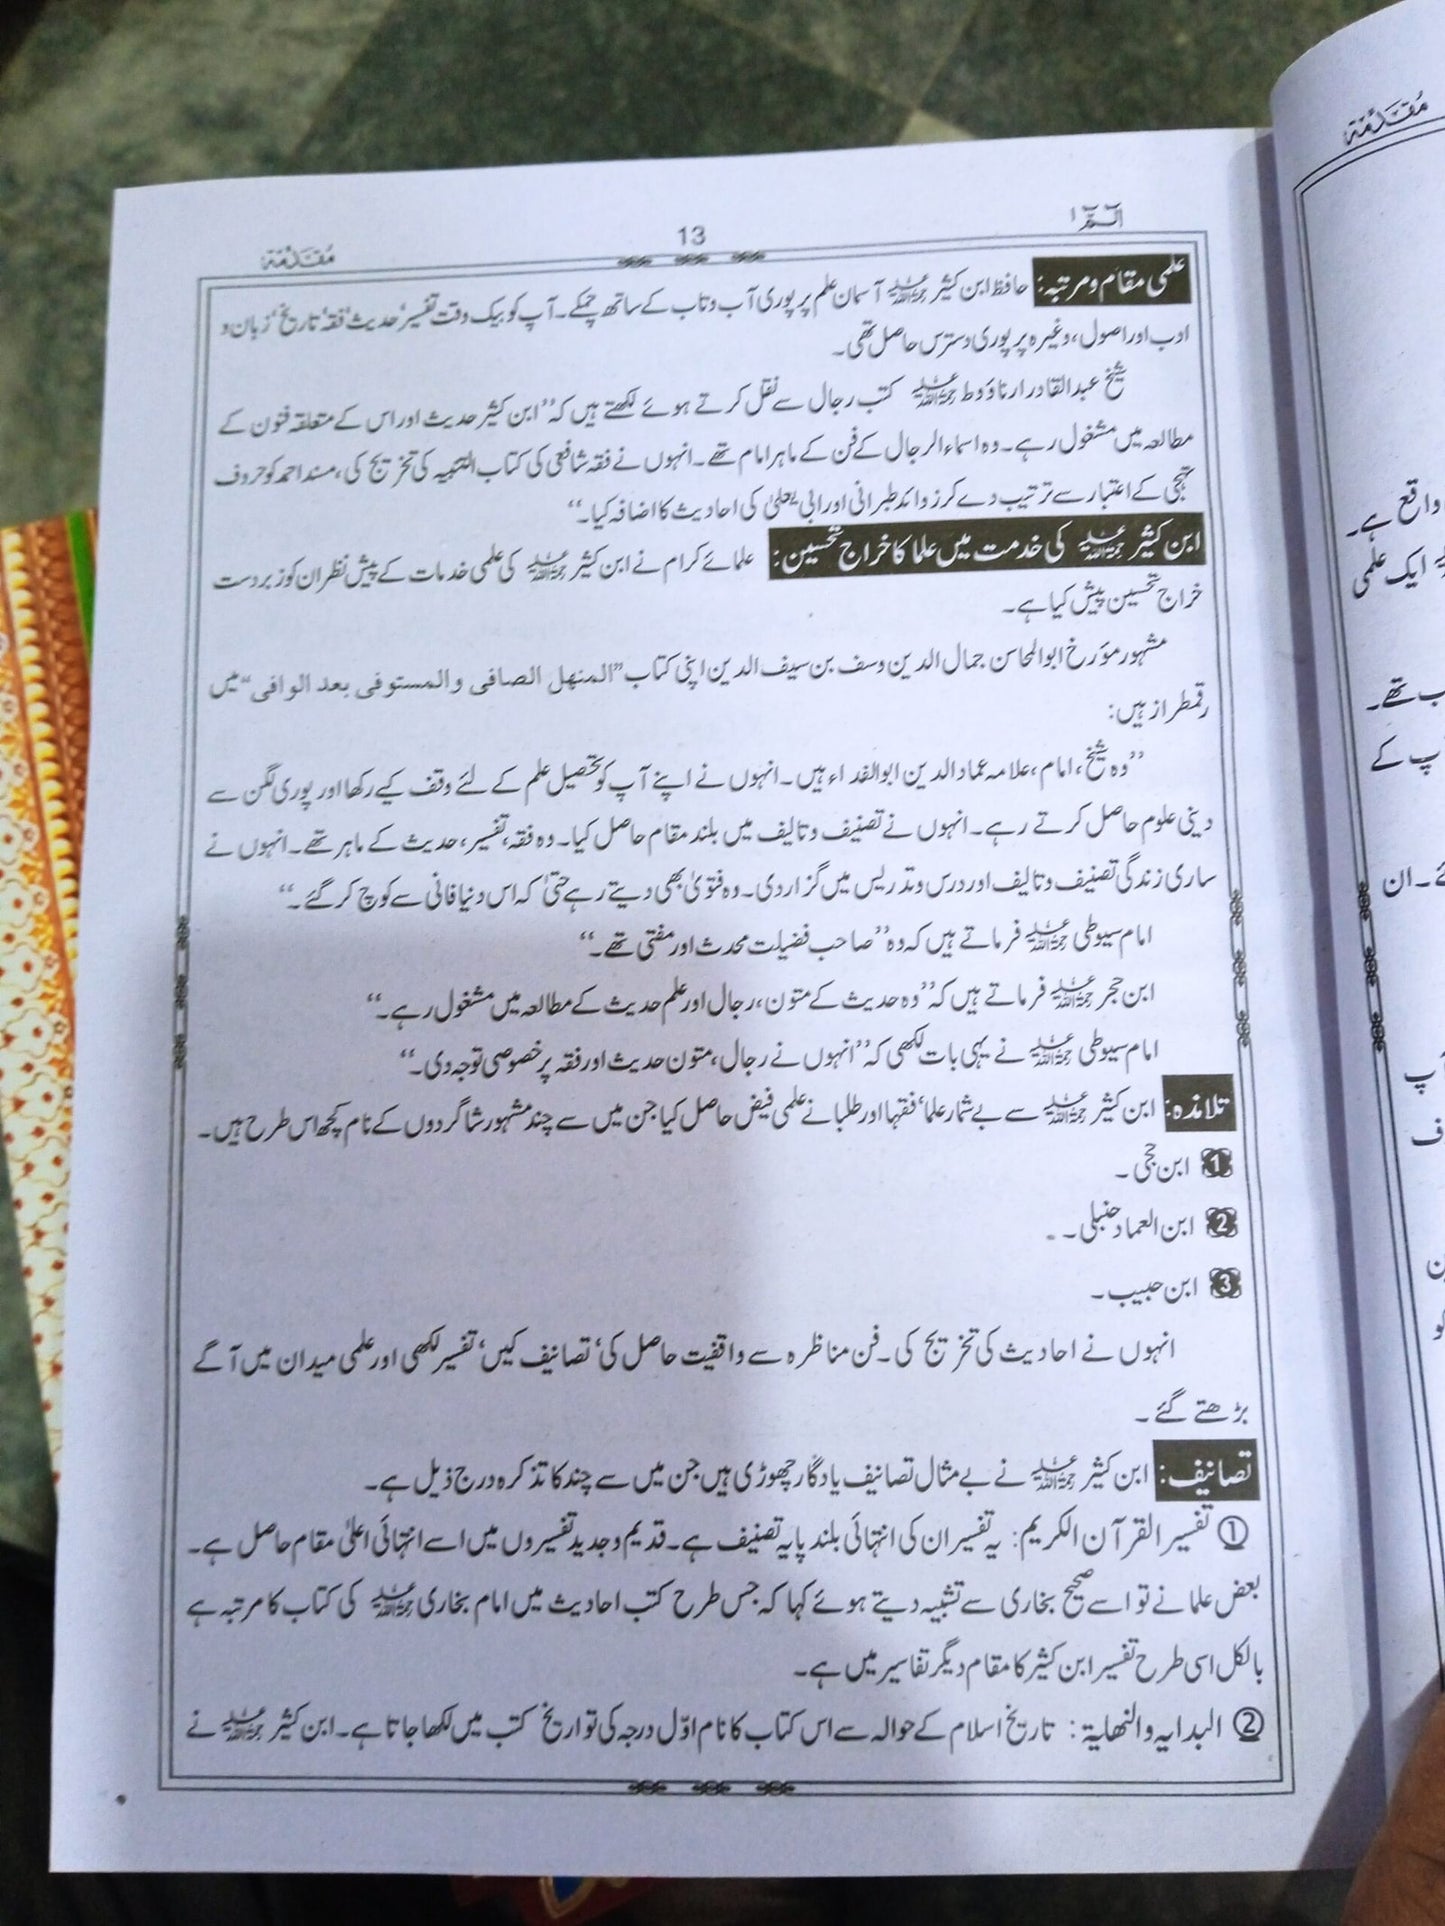 الٓـمّٓ ۱
13
مُقَدِّمَۃ
علمی مقام و مرتبہ: حافظ ابن کثیر رحمۃ اللہ علیہ آسمان علم پر پوری آب و تاب کے ساتھ چمکے۔ آپ کو بیک وقت تفسیر‘ حدیث‘ فقہ‘ تاریخ‘ زبان و
ادب اور اصول، وغیرہ پر پوری دسترس حاصل تھی۔
شیخ عبدالقادر ارناؤوط رحمۃ اللہ علیہ کتب رجال سے نقل کرتے ہوئے لکھتے ہیں کہ ’’ابن کثیر حدیث اور اس کے متعلقہ فنون کے
مطالعہ میں مشغول رہے۔ وہ اسماء الرجال کے فن کے ماہر امام تھے۔ انہوں نے فقہ شافعی کی کتاب التنبیہ کی تخریج کی، مسند احمد کو حروف
تہجی کے اعتبار سے ترتیب دے کر زوائد طبرانی اور ابی یعلیٰ کی احادیث کا اضافہ کیا۔‘‘
ابن کثیر رحمۃ اللہ علیہ کی خدمت میں علما کا خراج تحسین: علمائے کرام نے ابن کثیر رحمۃ اللہ علیہ کی علمی خدمات کے پیش نظر ان کو زبردست
خراج تحسین پیش کیا ہے۔
مشہور مؤرخ ابوالمحاسن جمال الدین وسف بن سیف الدین اپنی کتاب ”المنهل الصافی والمستوفی بعد الوافی“ میں
رقمطراز ہیں:
’’وہ شیخ، امام، علامہ عماد الدین ابوالفداء ہیں۔ انہوں نے اپنے آپ کو تحصیل علم کے لئے وقف کیے رکھا اور پوری لگن سے
دینی علوم حاصل کرتے رہے۔ انہوں نے تصنیف و تالیف میں بلند مقام حاصل کیا۔ وہ فقہ، تفسیر، حدیث کے ماہر تھے۔ انہوں نے
ساری زندگی تصنیف و تالیف اور درس و تدریس میں گزار دی۔ وہ فتویٰ بھی دیتے رہے حتیٰ کہ اس دنیا فانی سے کوچ کر گئے۔‘‘
امام سیوطی رحمۃ اللہ علیہ فرماتے ہیں کہ وہ ’’صاحب فضیلت محدث اور مفتی تھے۔‘‘
ابن حجر رحمۃ اللہ علیہ فرماتے ہیں کہ ’’وہ حدیث کے متون، رجال اور علم حدیث کے مطالعہ میں مشغول رہے۔‘‘
امام سیوطی رحمۃ اللہ علیہ نے یہی بات لکھی کہ ’’انہوں نے رجال، متون حدیث اور فقہ پر خصوصی توجہ دی۔‘‘
تلامذہ: ابن کثیر رحمۃ اللہ علیہ سے بے شمار علما‘ فقہا اور طلبا نے علمی فیض حاصل کیا جن میں سے چند مشہور شاگردوں کے نام کچھ اس طرح ہیں۔
1 ابن حجی۔
2 ابن العماد حنبلی۔
3 ابن حبیب۔
انہوں نے احادیث کی تخریج کی۔ فن مناظرہ سے واقفیت حاصل کی‘ تصانیف کیں‘ تفسیر لکھی اور علمی میدان میں آگے
بڑھتے گئے۔
تصانیف: ابن کثیر رحمۃ اللہ علیہ نے بے مثال تصانیف یادگار چھوڑی ہیں جن میں سے چند کا تذکرہ درج ذیل ہے۔
① تفسیر القرآن الکریم: یہ تفسیر ان کی انتہائی بلند پایہ تصنیف ہے۔ قدیم و جدید تفسیروں میں اسے انتہائی اعلیٰ مقام حاصل ہے۔
بعض علما نے تو اسے صحیح بخاری سے تشبیہ دیتے ہوئے کہا کہ جس طرح کتب احادیث میں امام بخاری رحمۃ اللہ علیہ کی کتاب کا مرتبہ ہے
بالکل اسی طرح تفسیر ابن کثیر کا مقام دیگر تفاسیر میں ہے۔
② البدایہ والنھایۃ: تاریخ اسلام کے حوالہ سے اس کتاب کا نام اوّل درجہ کی تواریخ کتب میں لکھا جاتا ہے۔ ابن کثیر رحمۃ اللہ علیہ نے
مُقَدِّمَۃ
واقع ہے۔
ایک علمی
تھے۔
پ کے
ان
آپ